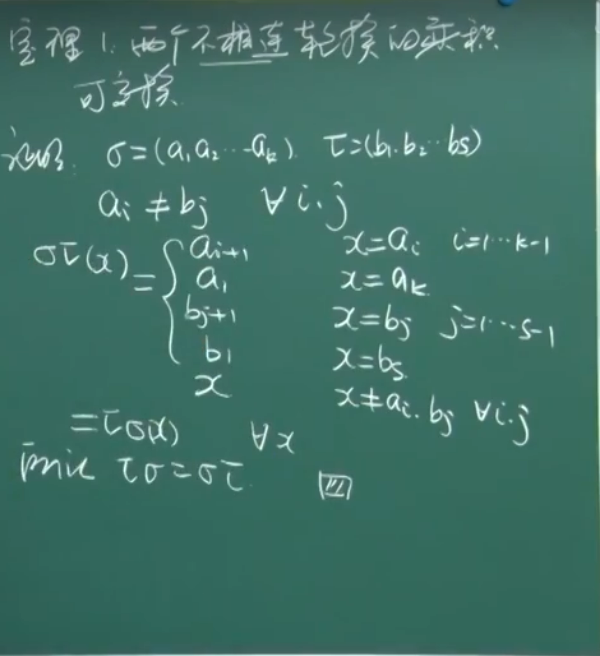 定理1. 两个不相连轮换的乘积
可交换.
证明: σ=(a₁a₂⋯aₖ). τ=(b₁.b₂⋯bs)
aᵢ ≠ bⱼ ∀i.j
στ(x) = { aᵢ₊₁ x=aᵢ i=1⋯k-1
a₁ x=aₖ.
bⱼ₊₁ x=bⱼ j=1⋯s-1
b₁ x=bs.
x x≠aᵢ.bⱼ ∀i.j
=τσ(x) ∀x
τσ=στ.